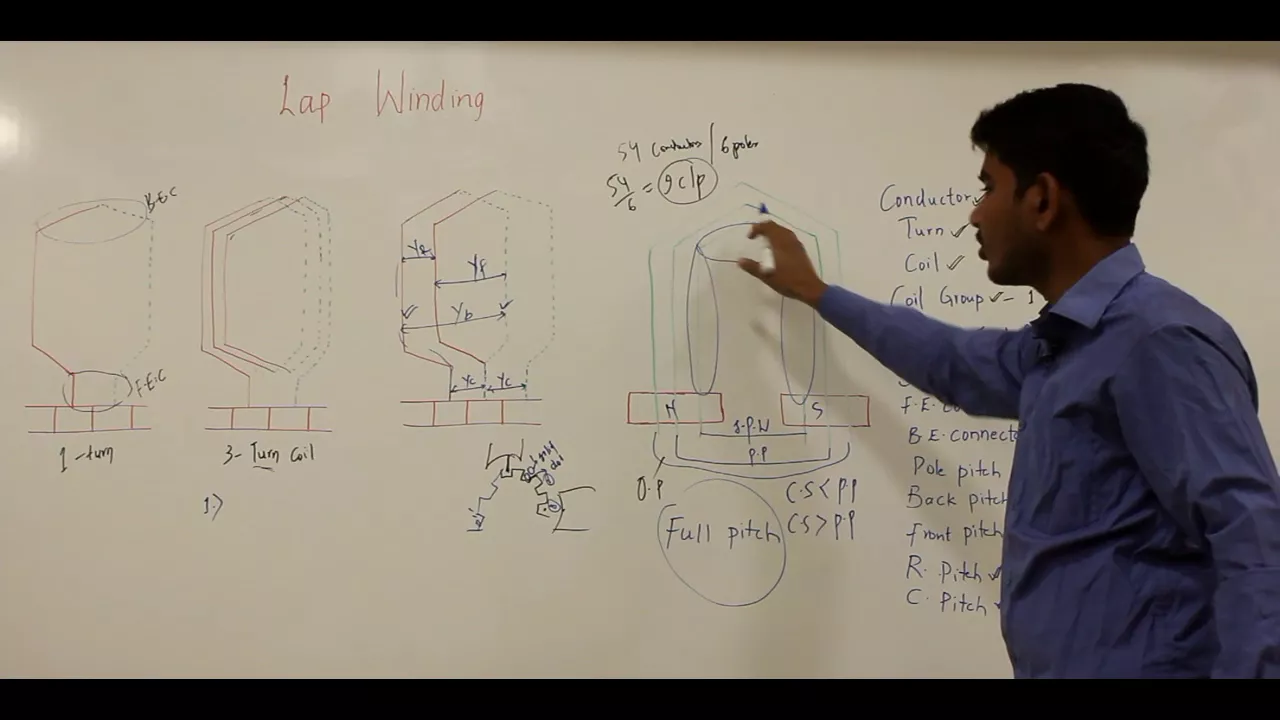 Lap Winding
B.E.C
F.E.C
1-turn
3-Turn Coil
1.)
YR
Yf
Yb
Yc Yc
54 Conductors / 6 poles
54/6 = 9 c/p
N S
S.P.W
P.P
O.P
C.S < P.P
C.S > P.P
Full pitch
Conductor ✓
Turn ✓
Coil ✓
Coil Group ✓ - 1
B.E. Connecto
Pole pitch
Back pitch
Front pitch
R. Pitch ✓
C. Pitch